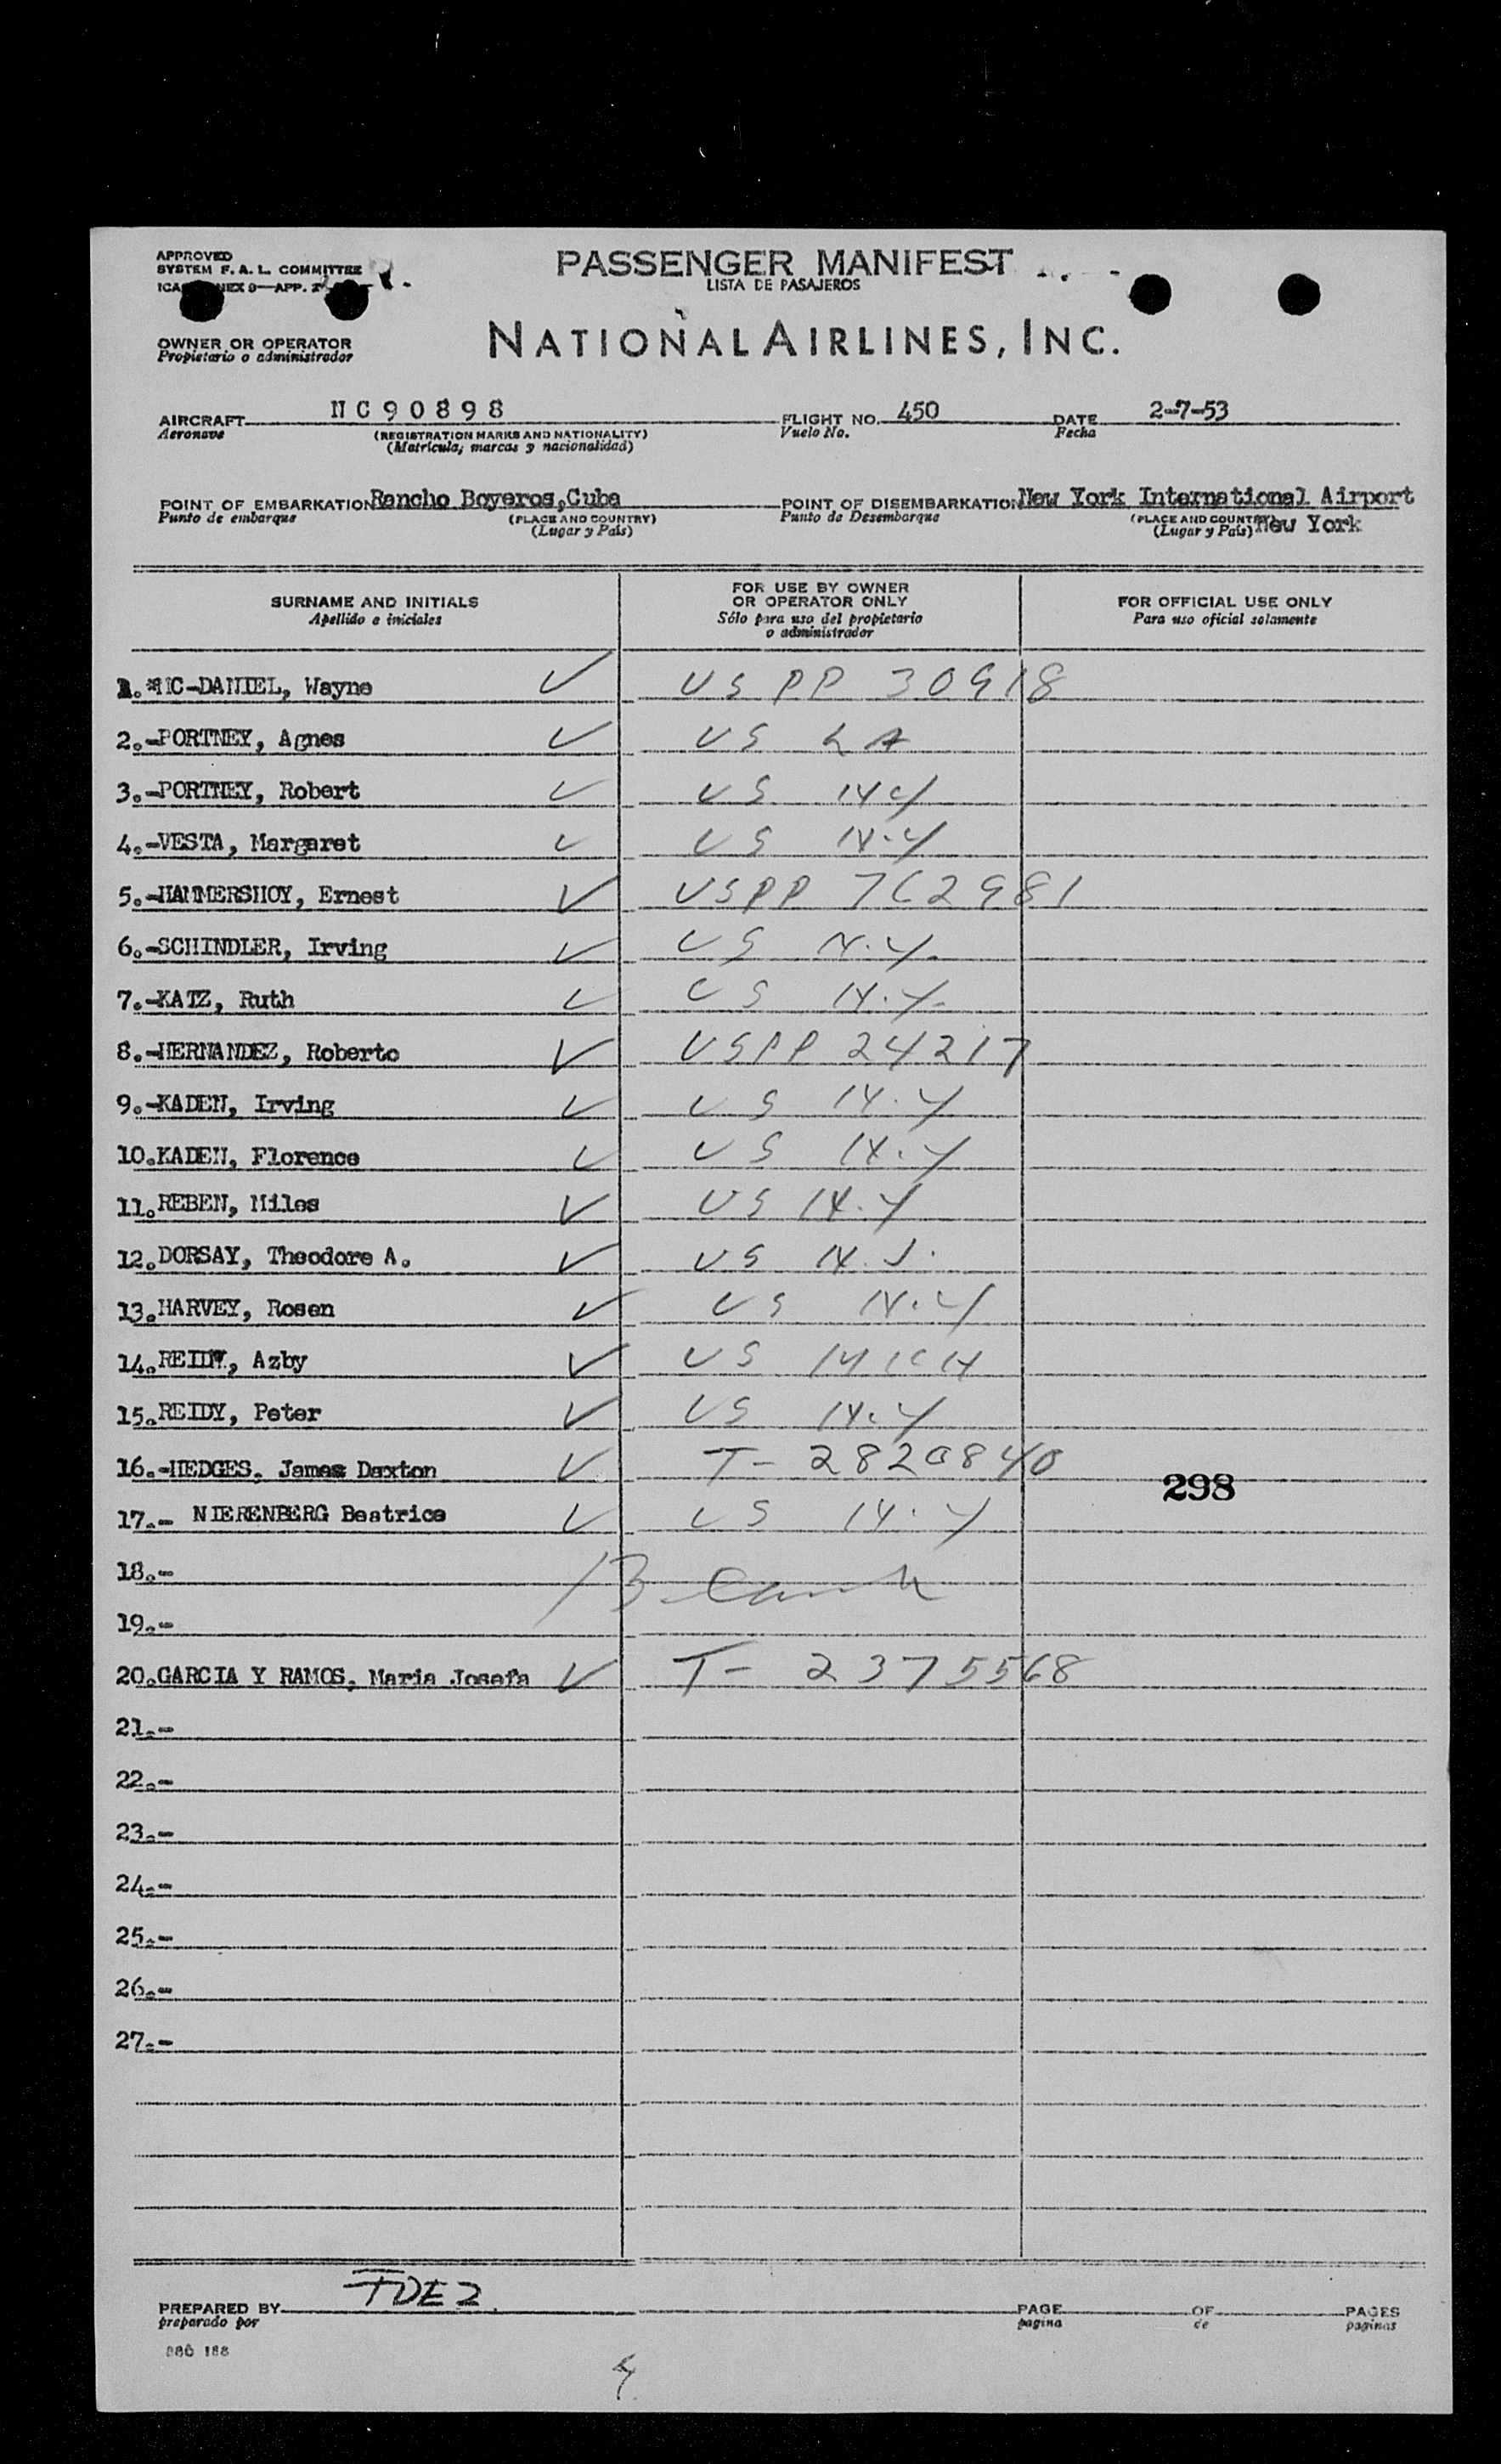 APPROVED
SYSTEM F. A. L. COMMITTEE
PASSENGER MANIFEST
LISTA DE PASAJEROS
OWNER OR OPERATOR
Propietario o administrador
NATIONAL AIRLINES, INC.
AIRCRAFT NC90898 FLIGHT NO. 450 DATE 2-7-53
Aeronave (REGISTRATION MARKS AND NATIONALITY) Vuelo No. Fecha
(Matrícula; marcas y nacionalidad)
POINT OF EMBARKATION Rancho Boyeros, Cuba POINT OF DISEMBARKATION New York International Airport
Punto de embarque (PLACE AND COUNTRY) Punto de Desembarque (PLACE AND COUNTRY) New York
(Lugar y País) (Lugar y País)
SURNAME AND INITIALS FOR USE BY OWNER OR OPERATOR ONLY FOR OFFICIAL USE ONLY
Apellido e iniciales Sólo para uso del propietario o administrador Para uso oficial solamente
1.-MC-DANIEL, Wayne ✓ US PP 30918
2.-PORTNEY, Agnes ✓ US LA
3.-PORTNEY, Robert ✓ US NY
4.-VESTA, Margaret ✓ US N.Y
5.-HAMMERSHOY, Ernest ✓ USPP 762981
6.-SCHINDLER, Irving ✓ US N.Y.
7.-KATZ, Ruth ✓ US N.Y.
8.-HERNANDEZ, Roberto ✓ USPP 24217
9.-KADEN, Irving ✓ US N.Y
10.KADEN, Florence ✓ US N.Y
11.REBEN, Miles ✓ US N.Y
12.DORSAY, Theodore A. ✓ US N.J.
13.HARVEY, Rosen ✓ US N.Y
14.REIDY, Azby ✓ US
15.REIDY, Peter ✓ US N.Y
16.-HEDGES, James Daxton ✓ T- 2820840
298
17.- NIERENBERG Beatrice ✓ US N.Y
18.- Blank
19.-
20.GARCIA Y RAMOS, Maria Josefa ✓ T- 2375568
21.-
22.-
23.-
24.-
25.-
26.-
27.-
PREPARED BY FDEZ PAGE OF PAGES
preparado por pagina de paginas